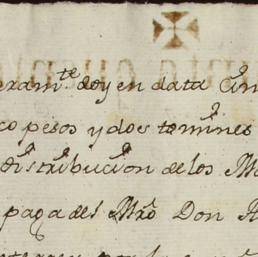 eram.te doy en data Cin
co pesos y dos tomines
distribucion de los M
paga del Mro Don A